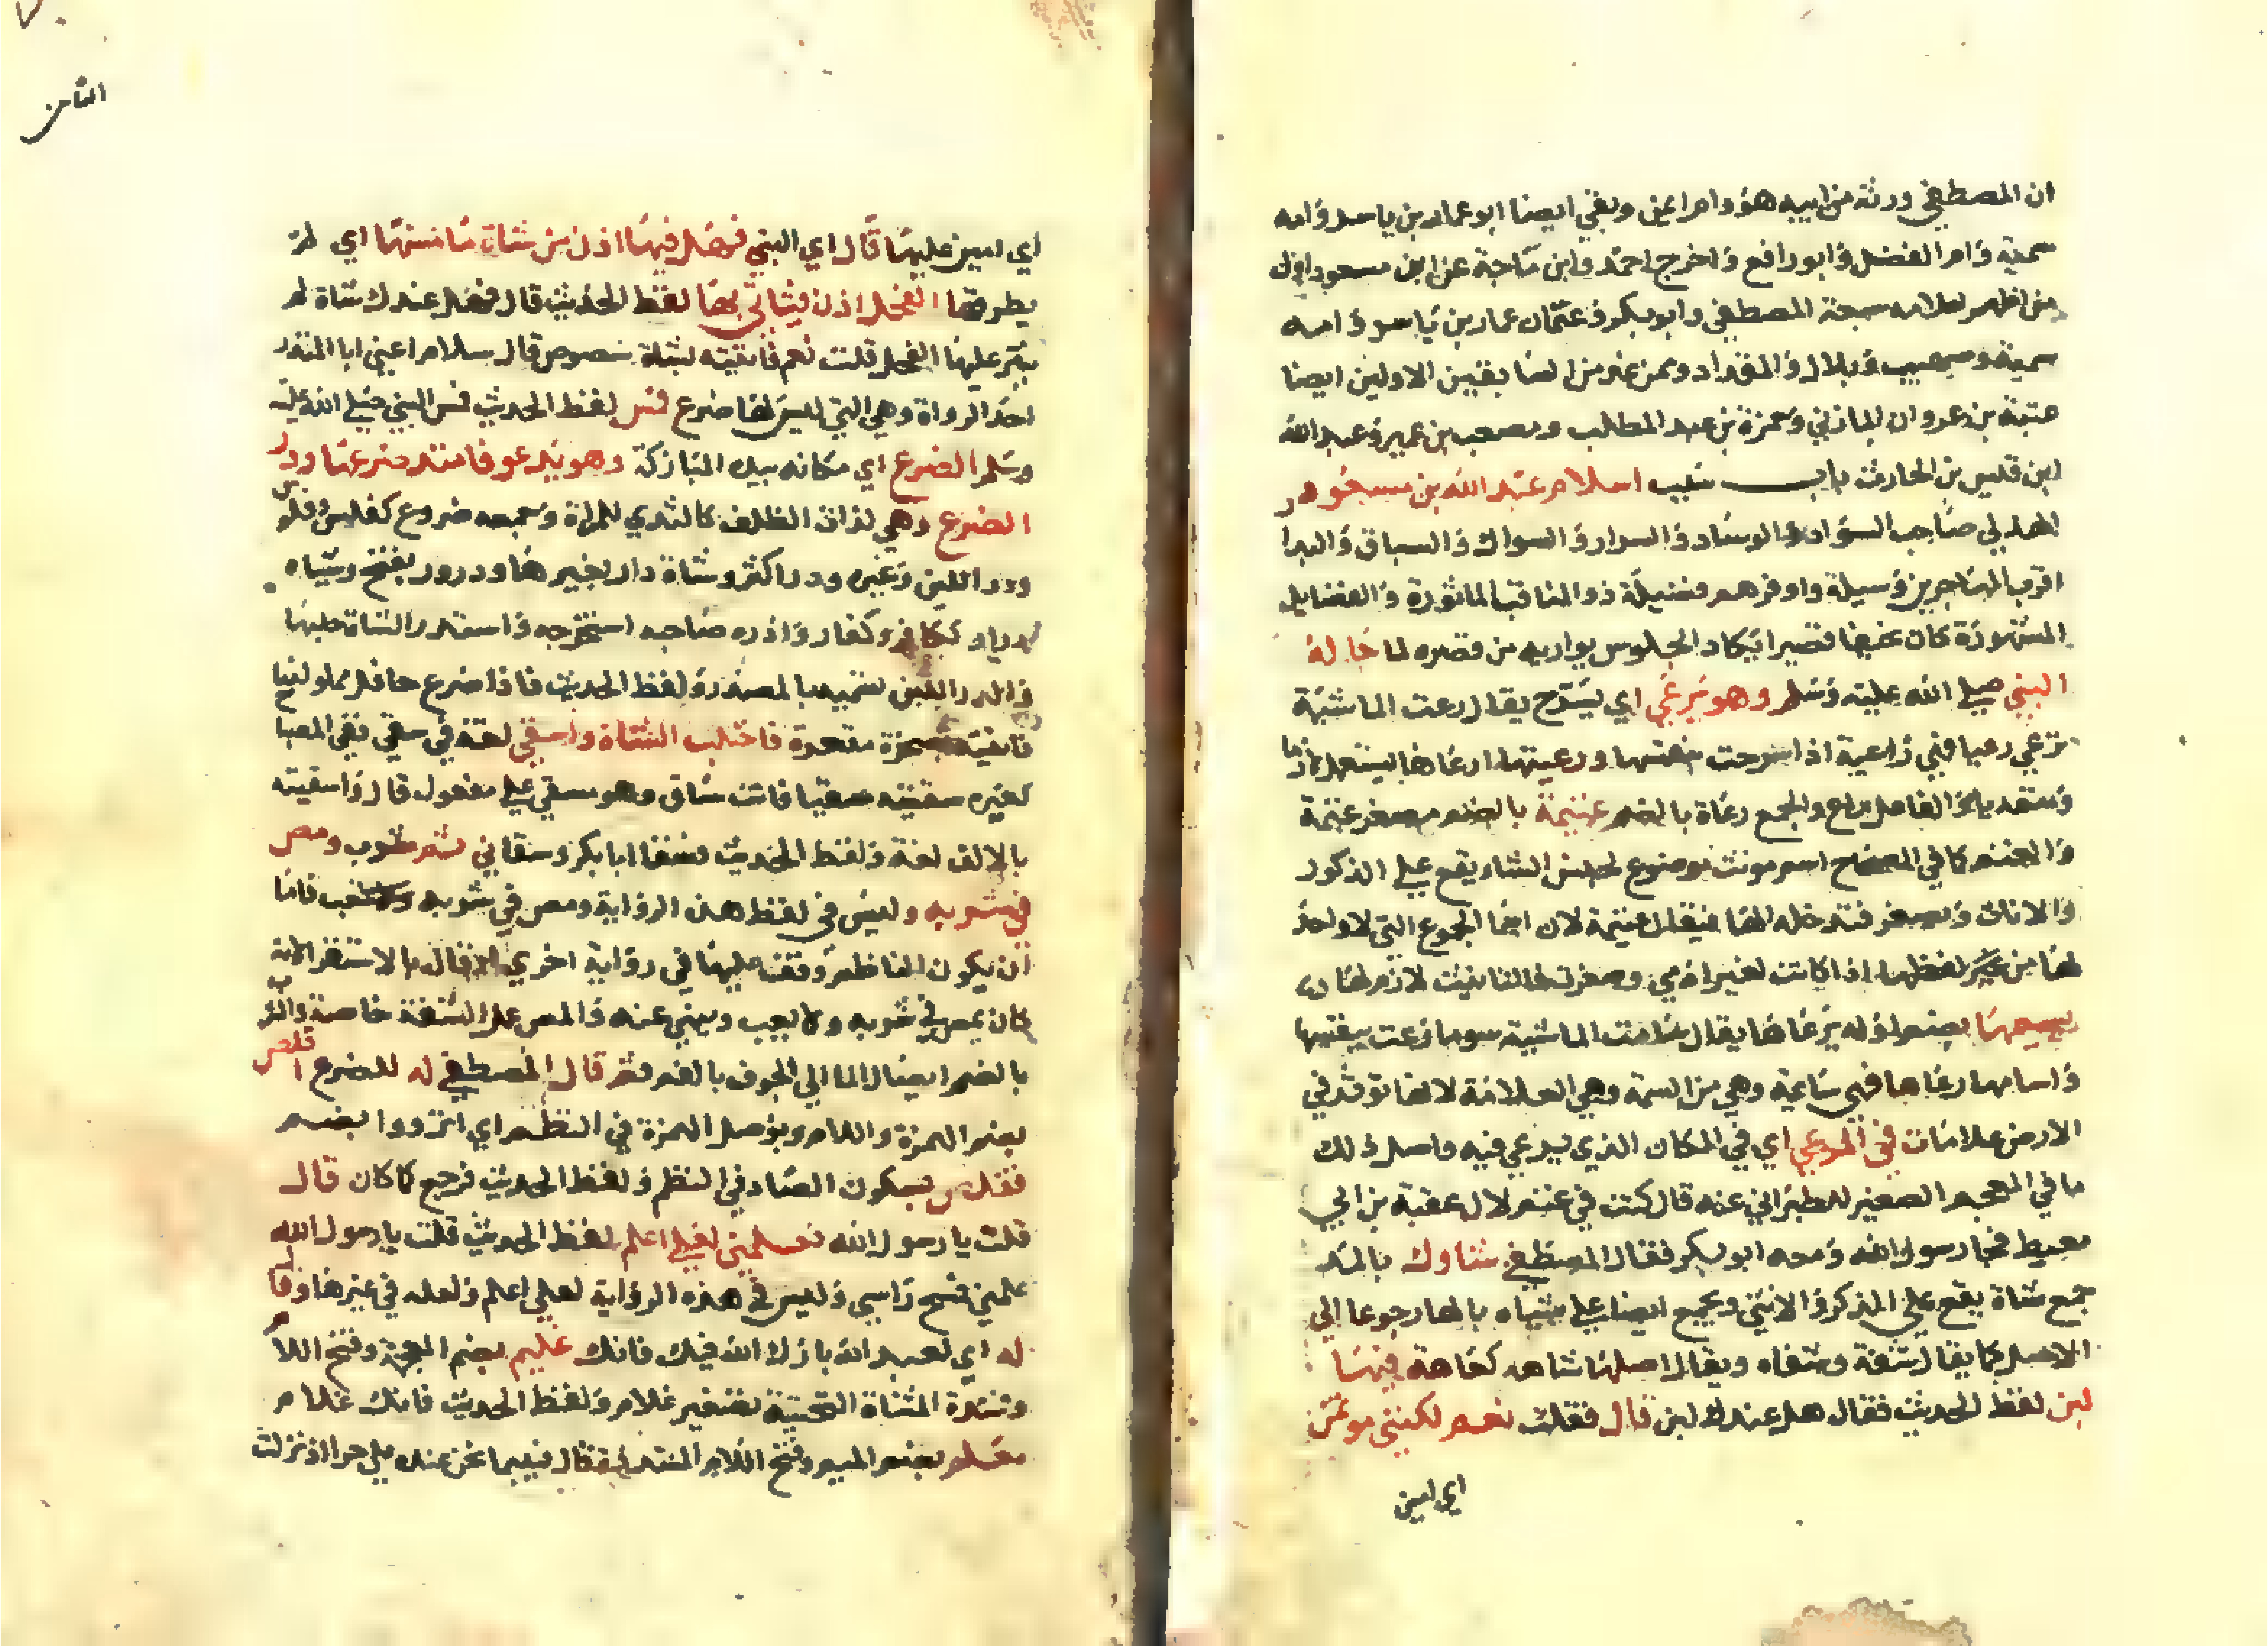 ان المصطفى ورثه من ابيه هو وام ايمن وبقي ايضا ابو عمار بن ياسر وامه
سمية وام الفضل وابو رافع واخرج احمد وابن ماجة عن ابن مسعود اول
من اظهر اسلامه سبعة المصطفى وابو بكر وعثمان عمار بن ياسر وامه
سمية وصهيب وبلال والمقداد وممن عد من السابقين الاولين ايضا
عتبة بن غزوان المازني وحمزة بن عبد المطلب ومصعب بن عمير وعبد الله
ابن قليس بن الحارث باب سبب اسلام عبد الله بن مسعود
الهذلي صاحب السواد والوساد والسرار والسواك والسباق والبدا
اقرب المهاجرين وسيلة واوفرهم فضيلة ذو المناقب الماثورة والفضايل
المشهورة كان نحيفا قصيرا يكاد الجلوس يواريه من قصره لما جا له
النبي صلى الله عليه وسلم وهو يرعى اي يسرح يقال رعت الماشية
ترعى رعيا فهي راعية اذا سرحت بنفسها ورعيتها ارعاها يستعمل لازما
ومتعديا والفاعل راع والجمع رعاة بالضم غنيمة بالضم مصغر غنمة
والغنم كما في المصباح اسم مونث موضوع لجنس الشاء يقع على الذكور
والاناث ويصغر فتدخله الها فيقال غنيمة لان اسما الجموع التي لا واحد
لها من غير لفظها اذا كانت لغير ادمي وصغرت فالتانيث لازم لها
يسيمها بضم اوله يرعاها يقال سامت الماشية سوما رعت بنفسها
واسامها رعاها فهي سائمة وهي من السمة وهي العلامة لانها توثر في
الارض علامات في المرعى اي في المكان الذي يرعى فيه واصل ذلك
ما في المعجم الصغير للطبراني عنه قال كنت في غنم لال عقبة بن ابي
معيط فجا رسول الله ومعه ابو بكر فقال المصطفى شاوك بالمد
جمع شاة يقع على الذكر والانثى ويجمع ايضا على شياه بالها رجوعا الى
الاصل كما يقال شفة وشفاه ويقال اصلها شاهه كعاهة فيها
لبن لفظ الحديث فقال هل عندك لبن قال فقلت نعم لكنني موتمن
اي امين
الثامن
اي امين عليها قال اي النبي فهل فيها اذن من شاة ما مسها اي لم
يطرقها الفحل اذن فيثاتي بها لفظ الحديث قال فهل عندك شاة لم
ينز عليها الفحل قلت نعم فاتيته بشاة شصوص قال سلام اعني ابا المنذر
احد الرواة وهي التي ليس لها ضرع فمس لفظ الحديث فمس النبي صلى الله عليه
وسلم الضرع اي مكانه بيده المباركة وهو يدعو فامتد ضرعها ودر
الضرع وهي لذات الظلف كالثدي للمراة وجمعه ضروع كفلس وفلوس
ودر اللبن وغيره ودر اكثر وشاة دار بغير ها ودرور بفتح وشياه
درار ككافر وكفار وادره صاحبه استخرجه واستدر الشاة حلبها
والدر اللبن تسمية بالمصدر ولفظ الحديث فاذا ضرع حافل مملو لبنا
فاتيته بصخرة مقعرة فاحتلب الشاة واسقى لغة في سقى ففي المصبا
كغيره سقيته سقيا فانت ساق وهو مسقي على مفعول قال واسقيته
بالالف لغة ولفظ الحديث فسقا ابا بكر وسقاني ثم شرب ومص
في شربه وليس في لفظ هذه الرواية ومص في شربه فاما
ان يكون الناظم وقف عليها في رواية اخرى او قاله بالاستقرا لانه
كان يمص في شربه ولا يعب وينهى عنه والمص عمل الشفة خاصة والشرب
بالضم ايصال الما الى الجوف بالفم ثم قال المصطفى له للضرع اقلص
بضم الهمزة واللام وبوصل الهمزة في النظم اي انزووا بضم
فقلص بسكون الصاد في النظم ولفظ الحديث فرجع كما كان قال
قلت يا رسول الله فعلمني لعلي اعلم لفظ الحديث قلت يا رسول الله
علمني فمسح راسي وليس في هذه الرواية لعلي اعلم ولعله في غيرها وقال
له اي لعبد الله بارك الله فيك فانك غليم بضم المعجمة وفتح اللام
وشدة المثناة التحتية تصغير غلام ولفظ الحديث فانك غلام
معلم بضم الميم وفتح اللام المشددة قال فبينما نحن عنده على حرا اذ نزلت